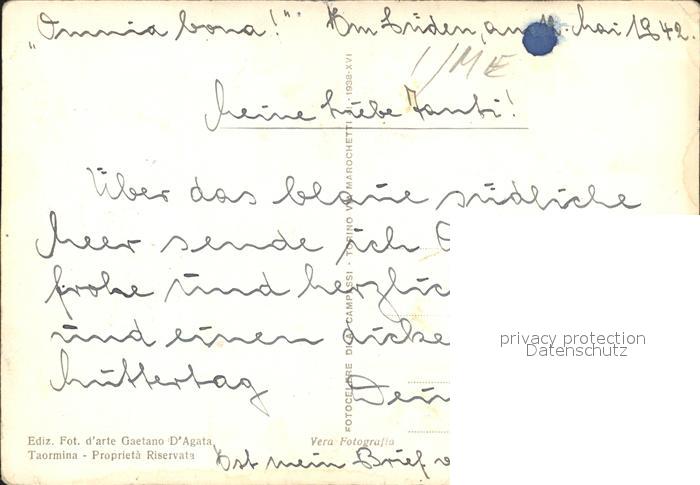 „Omnia bona!" Im Süden, am 11. Mai 1942.
IME
Meine liebe Tanti!
Über das blaue südliche
Meer sende ich
frohe und herzlic
und einen dicke
Muttertag Dein
Ediz. Fot. d'arte Gaetano D'Agata
Taormina - Proprietà Riservata
Vera Fotografia
Ist mein Brief
FOTOCELERE DI A. CAMPASSI - TORINO VIA MAROCHETTI 41 - 1938-XVI
privacy protection
Datenschutz